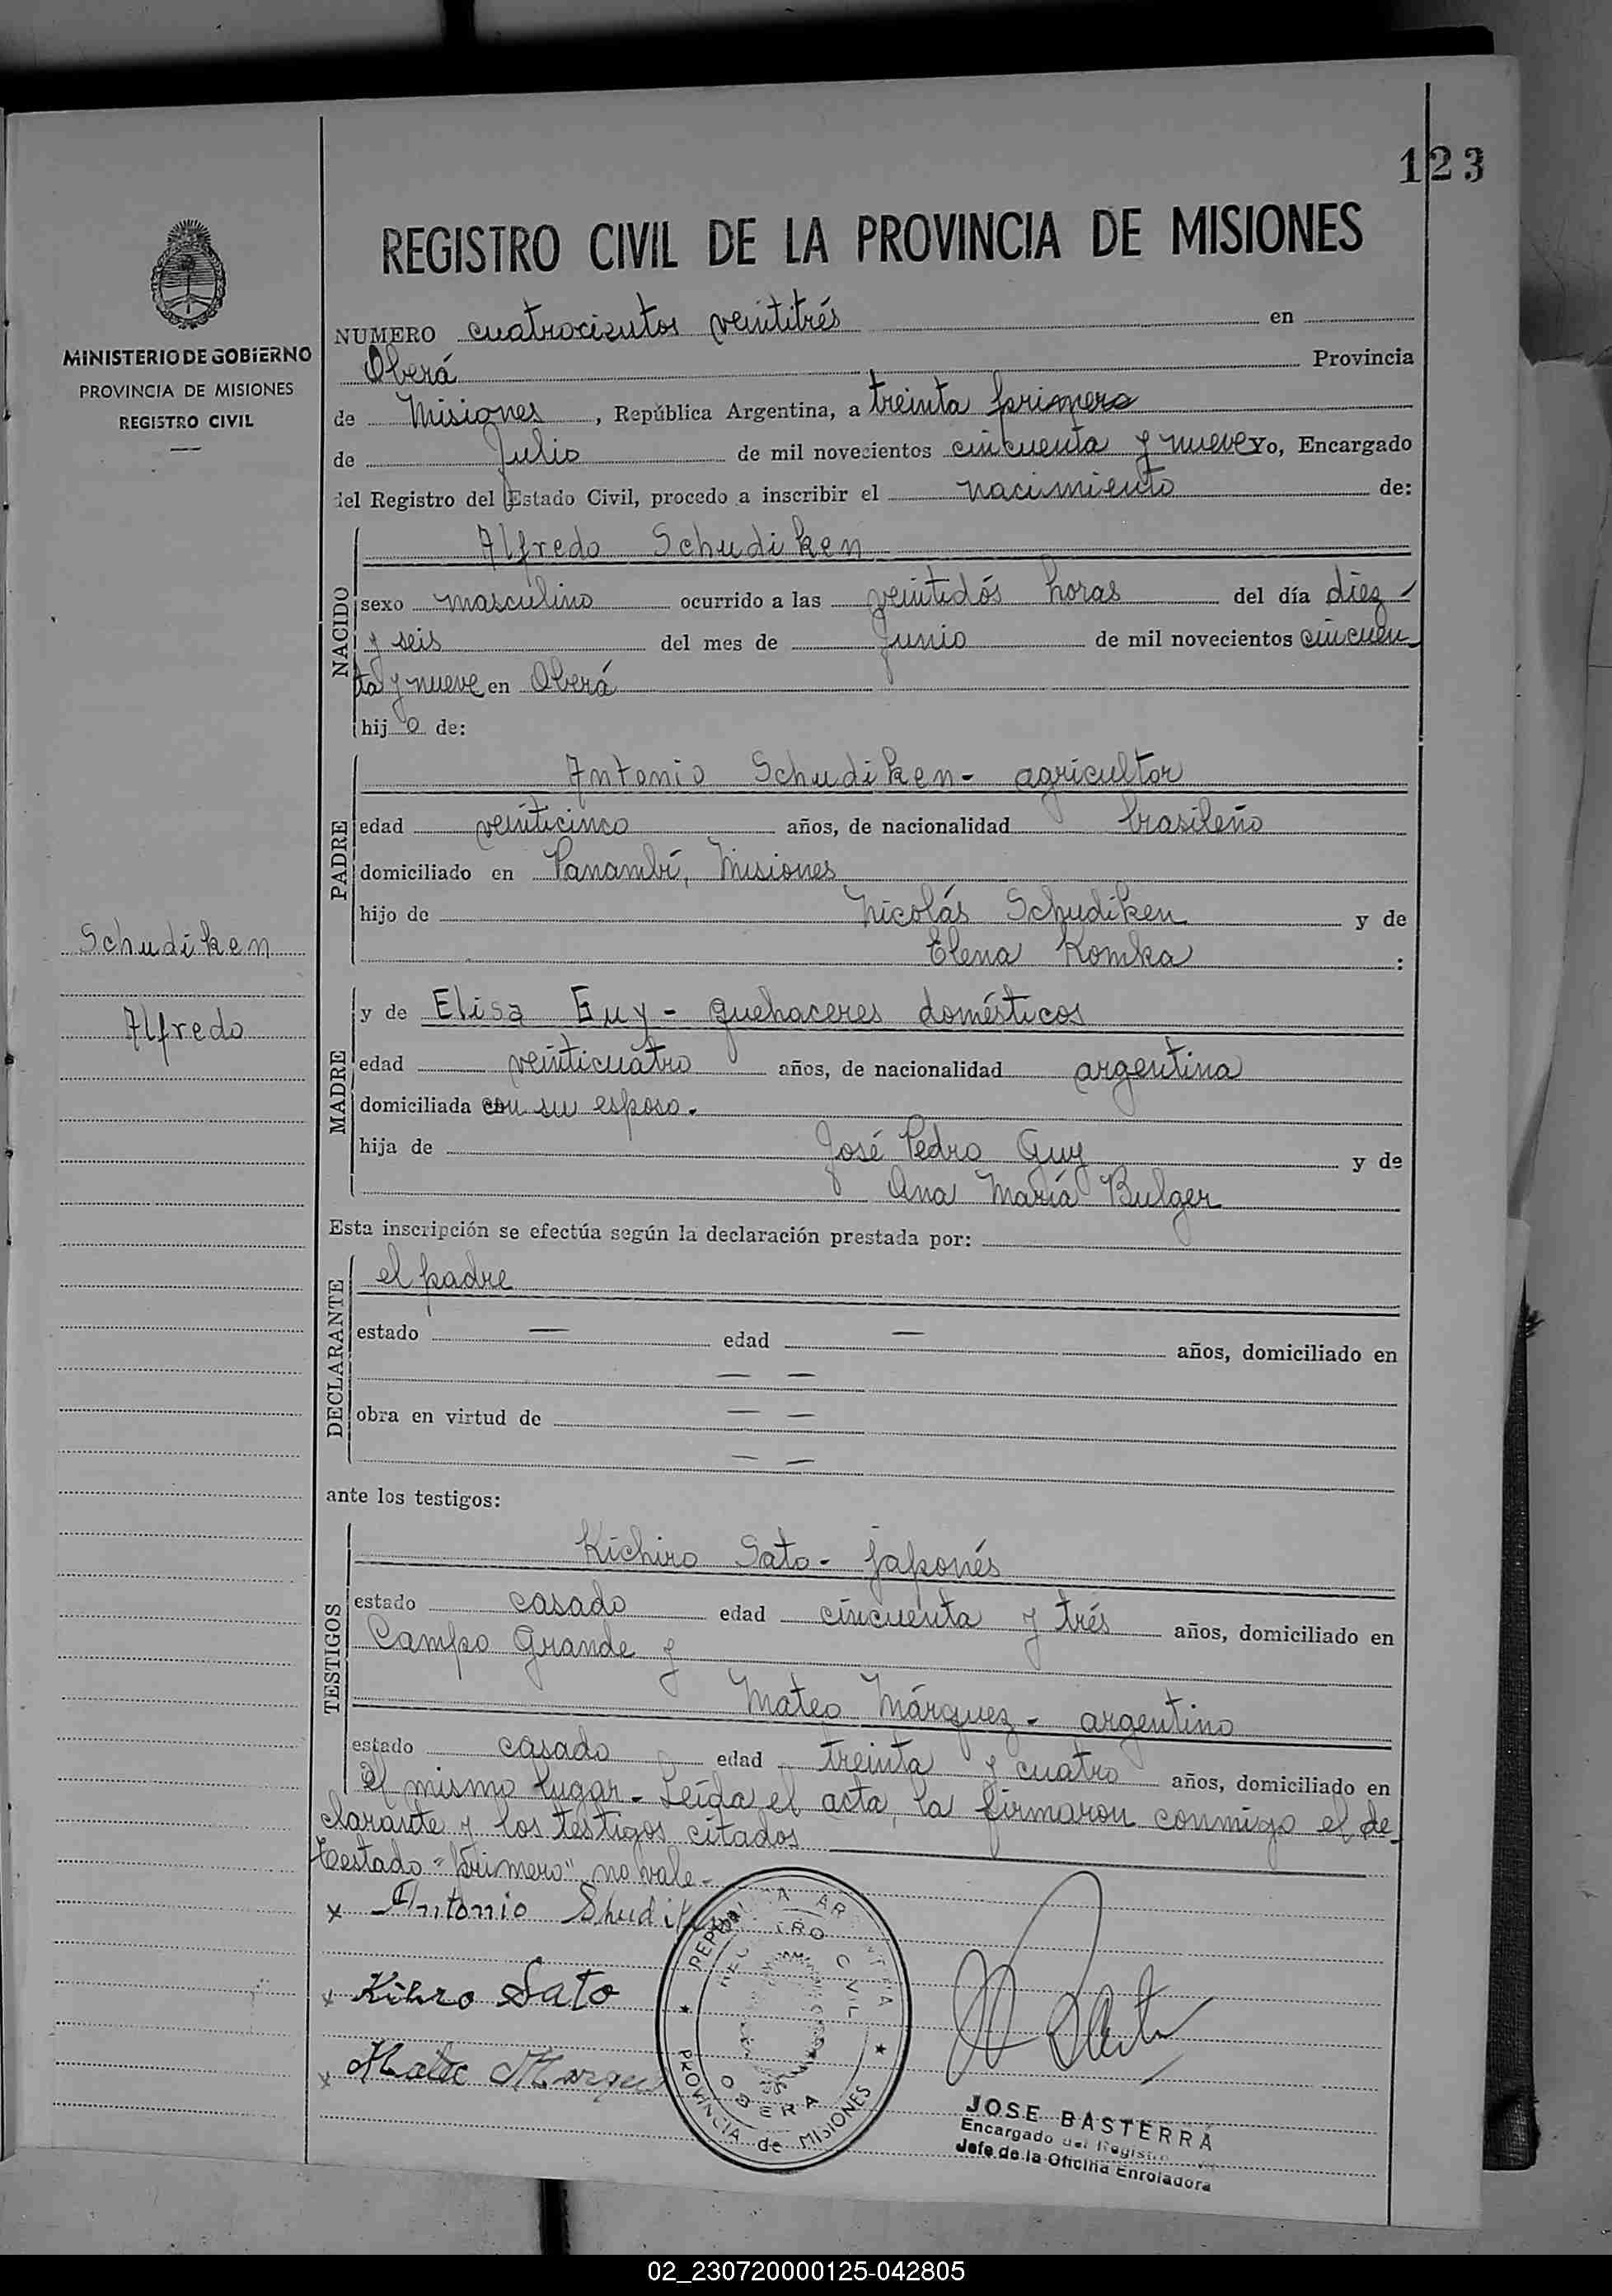 123
REGISTRO CIVIL DE LA PROVINCIA DE MISIONES
MINISTERIO DE GOBIERNO
PROVINCIA DE MISIONES
REGISTRO CIVIL
NUMERO cuatrocientos veintitrés en
Oberá Provincia
de Misiones, República Argentina, a treinta primero
de Julio de mil novecientos cincuenta y nueve Yo, Encargado
del Registro del Estado Civil, procedo a inscribir el nacimiento de:
NACIDO
Alfredo Schudiken
sexo masculino ocurrido a las veintidós horas del día diez
y seis del mes de Junio de mil novecientos cincuen
ta y nueve en Oberá
hijo de:
PADRE
Antonio Schudiken - agricultor
edad veinticinco años, de nacionalidad brasileño
domiciliado en Panambí, Misiones
hijo de Nicolás Schudiken y de
Elena Komka :
Schudiken
Alfredo
MADRE
y de Elisa Guy - quehaceres domésticos
edad veinticuatro años, de nacionalidad argentina
domiciliada con su esposo.
hija de José Pedro Guy y de
Ana María Bulger
Esta inscripción se efectúa según la declaración prestada por:
DECLARANTE
el padre
estado — edad — años, domiciliado en
— —
obra en virtud de — —
— —
ante los testigos:
TESTIGOS
Kichiro Sato - japonés
estado casado edad cincuenta y trés años, domiciliado en
Campo Grande y
Mateo Márquez - argentino
estado casado edad treinta y cuatro años, domiciliado en
el mismo lugar - Leída el acta, la firmaron conmigo el de-
clarante y los testigos citados
Testado "primero" no vale -
x Antonio
x Sato
x
REPUBLICA ARGENTINA
REGISTRO CIVIL
OBERA
PROVINCIA de MISIONES
JOSE BASTERRA
Encargado del Registro
Jefe de la Oficina Enroladora
02_230720000125-042805